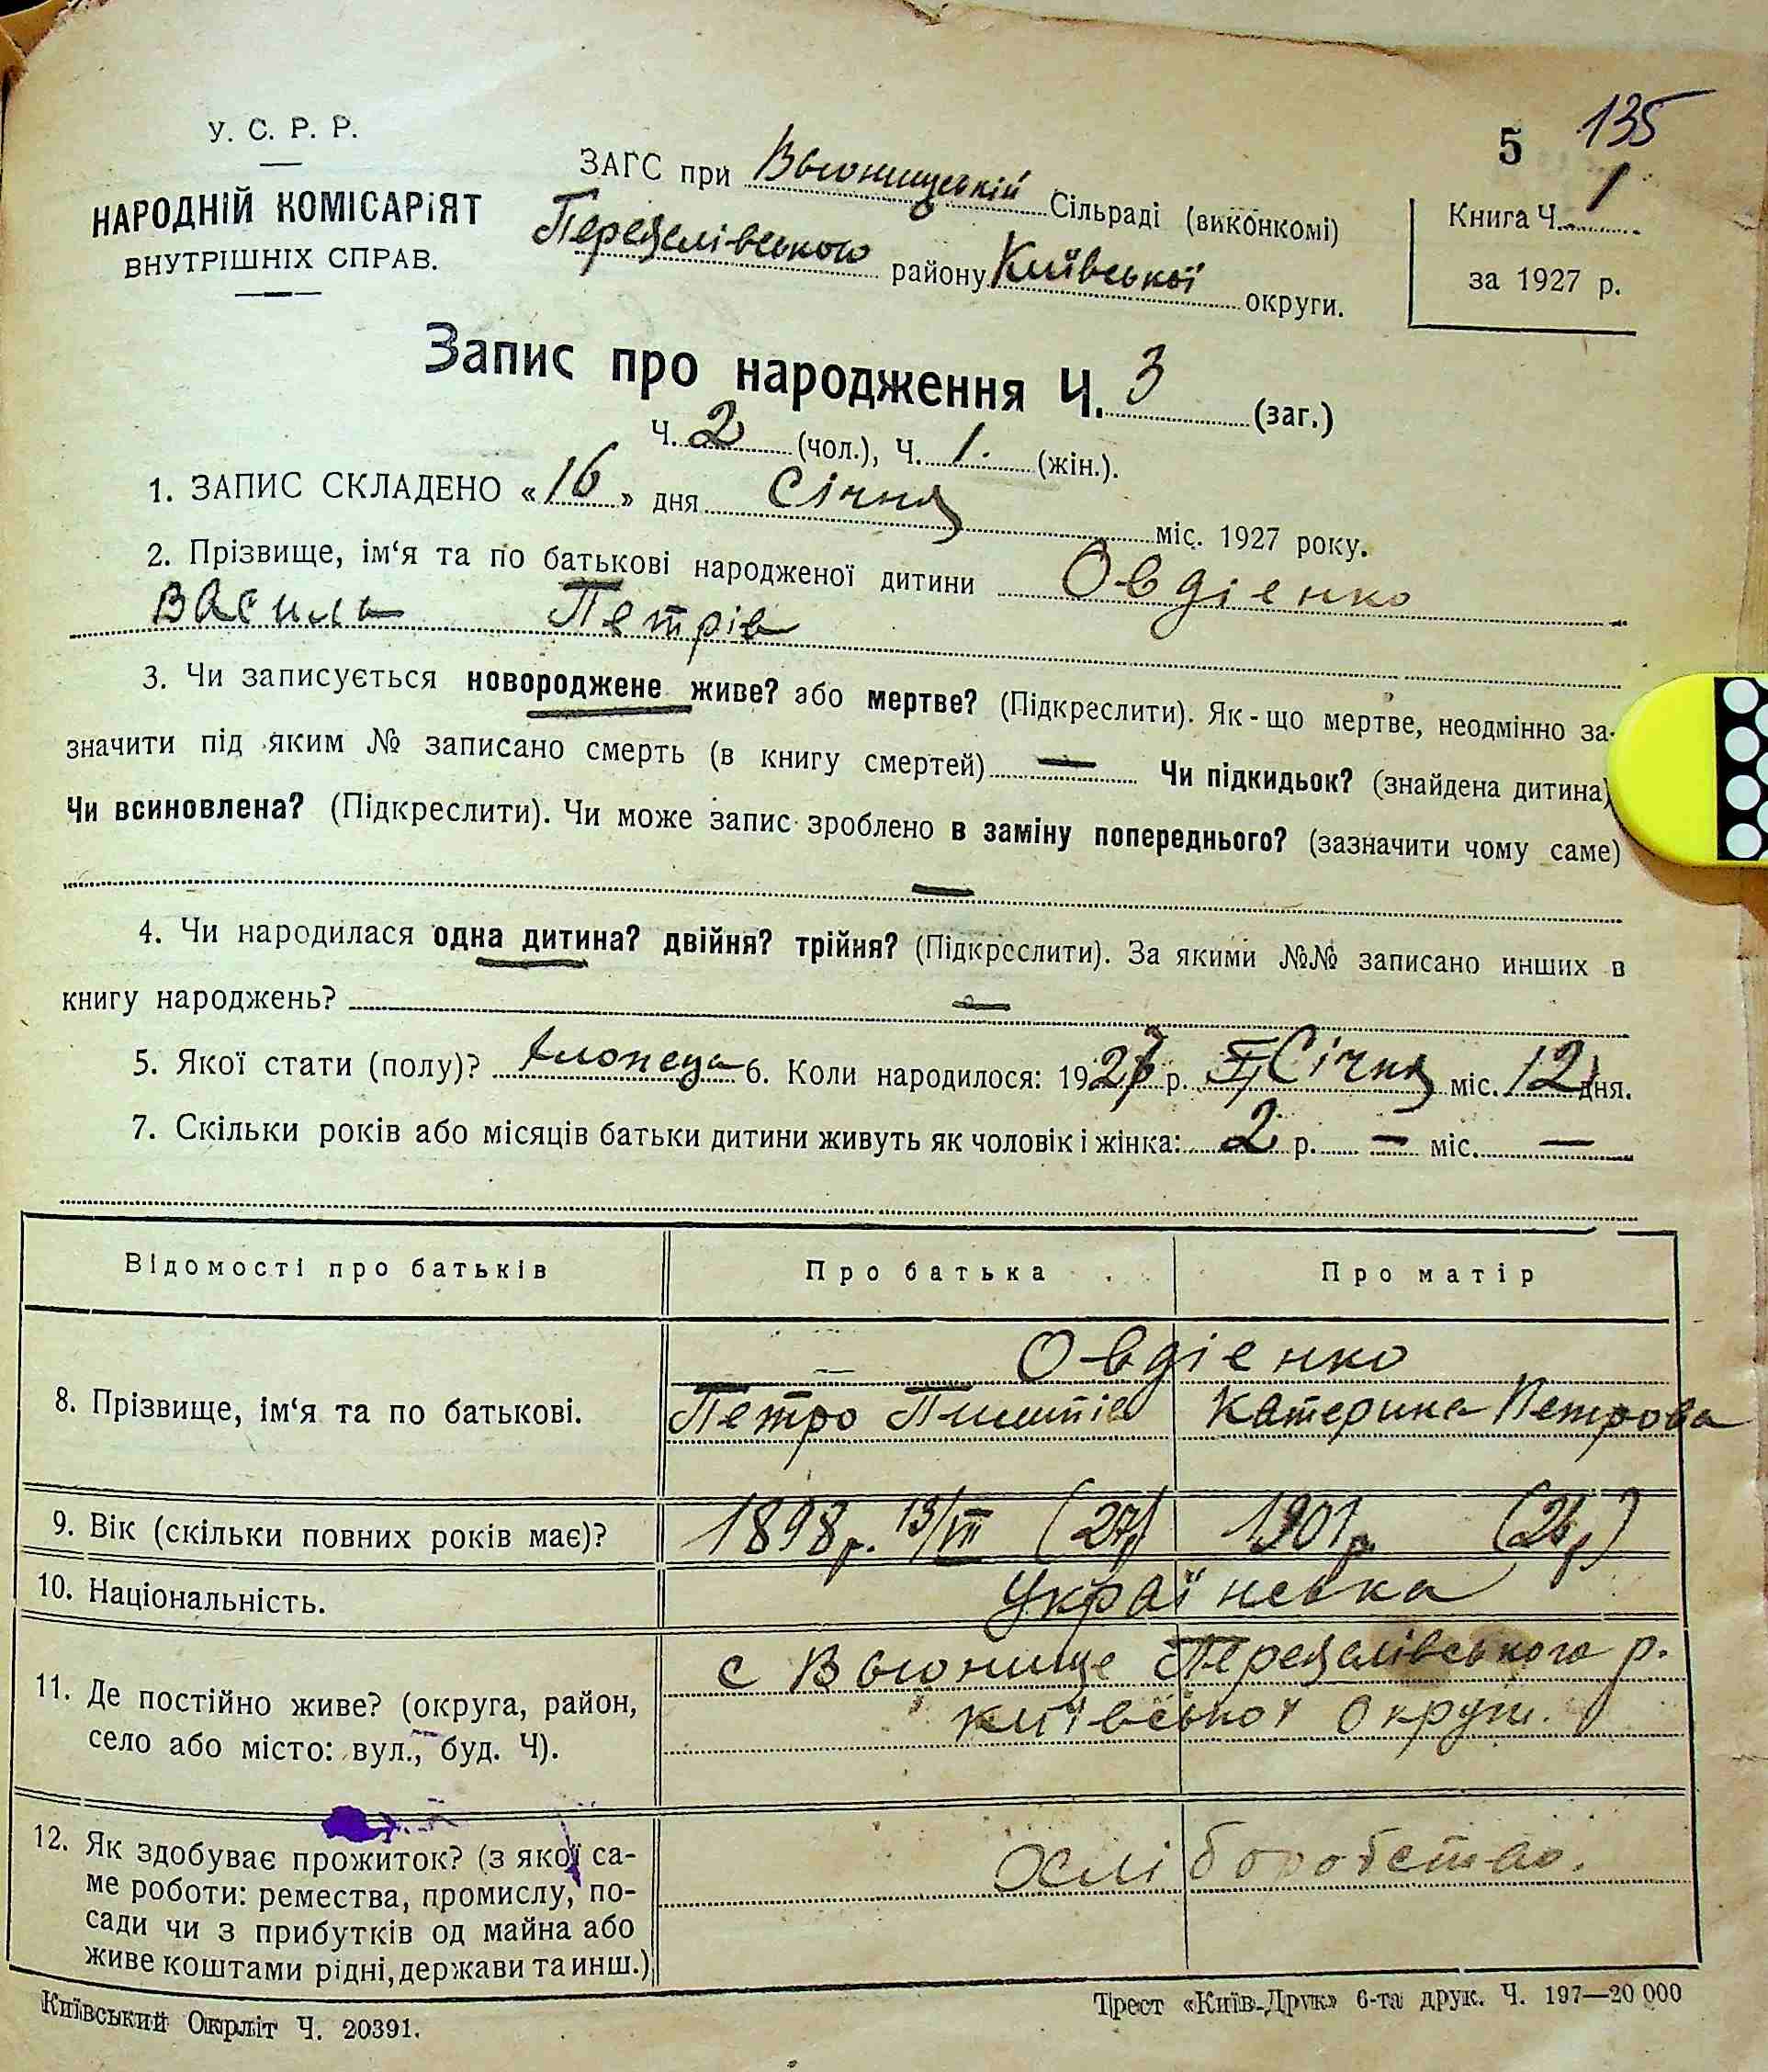 У. С. Р. Р.
НАРОДНІЙ КОМІСАРІЯТ
ВНУТРІШНІХ СПРАВ.
ЗАГС при Вьюнищській Сільраді (виконкомі)
Переяслівського району Київської округи.
5 135
Книга Ч. 1
за 1927 р.
Запис про народження Ч. 3 (заг.)
Ч. 2 (чол.), Ч. 1. (жін.).
1. ЗАПИС СКЛАДЕНО «16» дня Січня міс. 1927 року.
2. Прізвище, ім‘я та по батькові народженої дитини Овдіенко
Василь Петрів
3. Чи записується новороджене живе? або мертве? (Підкреслити). Як-що мертве, неодмінно за-
значити під яким № записано смерть (в книгу смертей) — Чи підкидьок? (знайдена дитина)
Чи всиновлена? (Підкреслити). Чи може запис зроблено в заміну попереднього? (зазначити чому саме)
—
4. Чи народилася одна дитина? двійня? трійня? (Підкреслити). За якими №№ записано инших в
книгу народжень? —
5. Якої стати (полу)? Хлопець 6. Коли народилося: 1927 р. Січня міс. 12 дня.
7. Скільки років або місяців батьки дитини живуть як чоловік і жінка: 2 р. — міс. —
Відомості про батьків Про батька Про матір
8. Прізвище, ім‘я та по батькові. Овдіенко
Петро Пилипів Катерина Петрова
9. Вік (скільки повних років має)? 1898р. 13/VII (27р) 1901р. (26р)
10. Національність. Українська
11. Де постійно живе? (округа, район,
село або місто: вул., буд. Ч).
с Вьюнище Переяслівського р.
київської округи.
12. Як здобуває прожиток? (з якої са-
ме роботи: ремества, промислу, по-
сади чи з прибутків од майна або
живе коштами рідні, держави та инш.)
Київський Окрліт Ч. 20391.
Трест «Київ-Друк» 6-та друк. Ч. 197—20 000